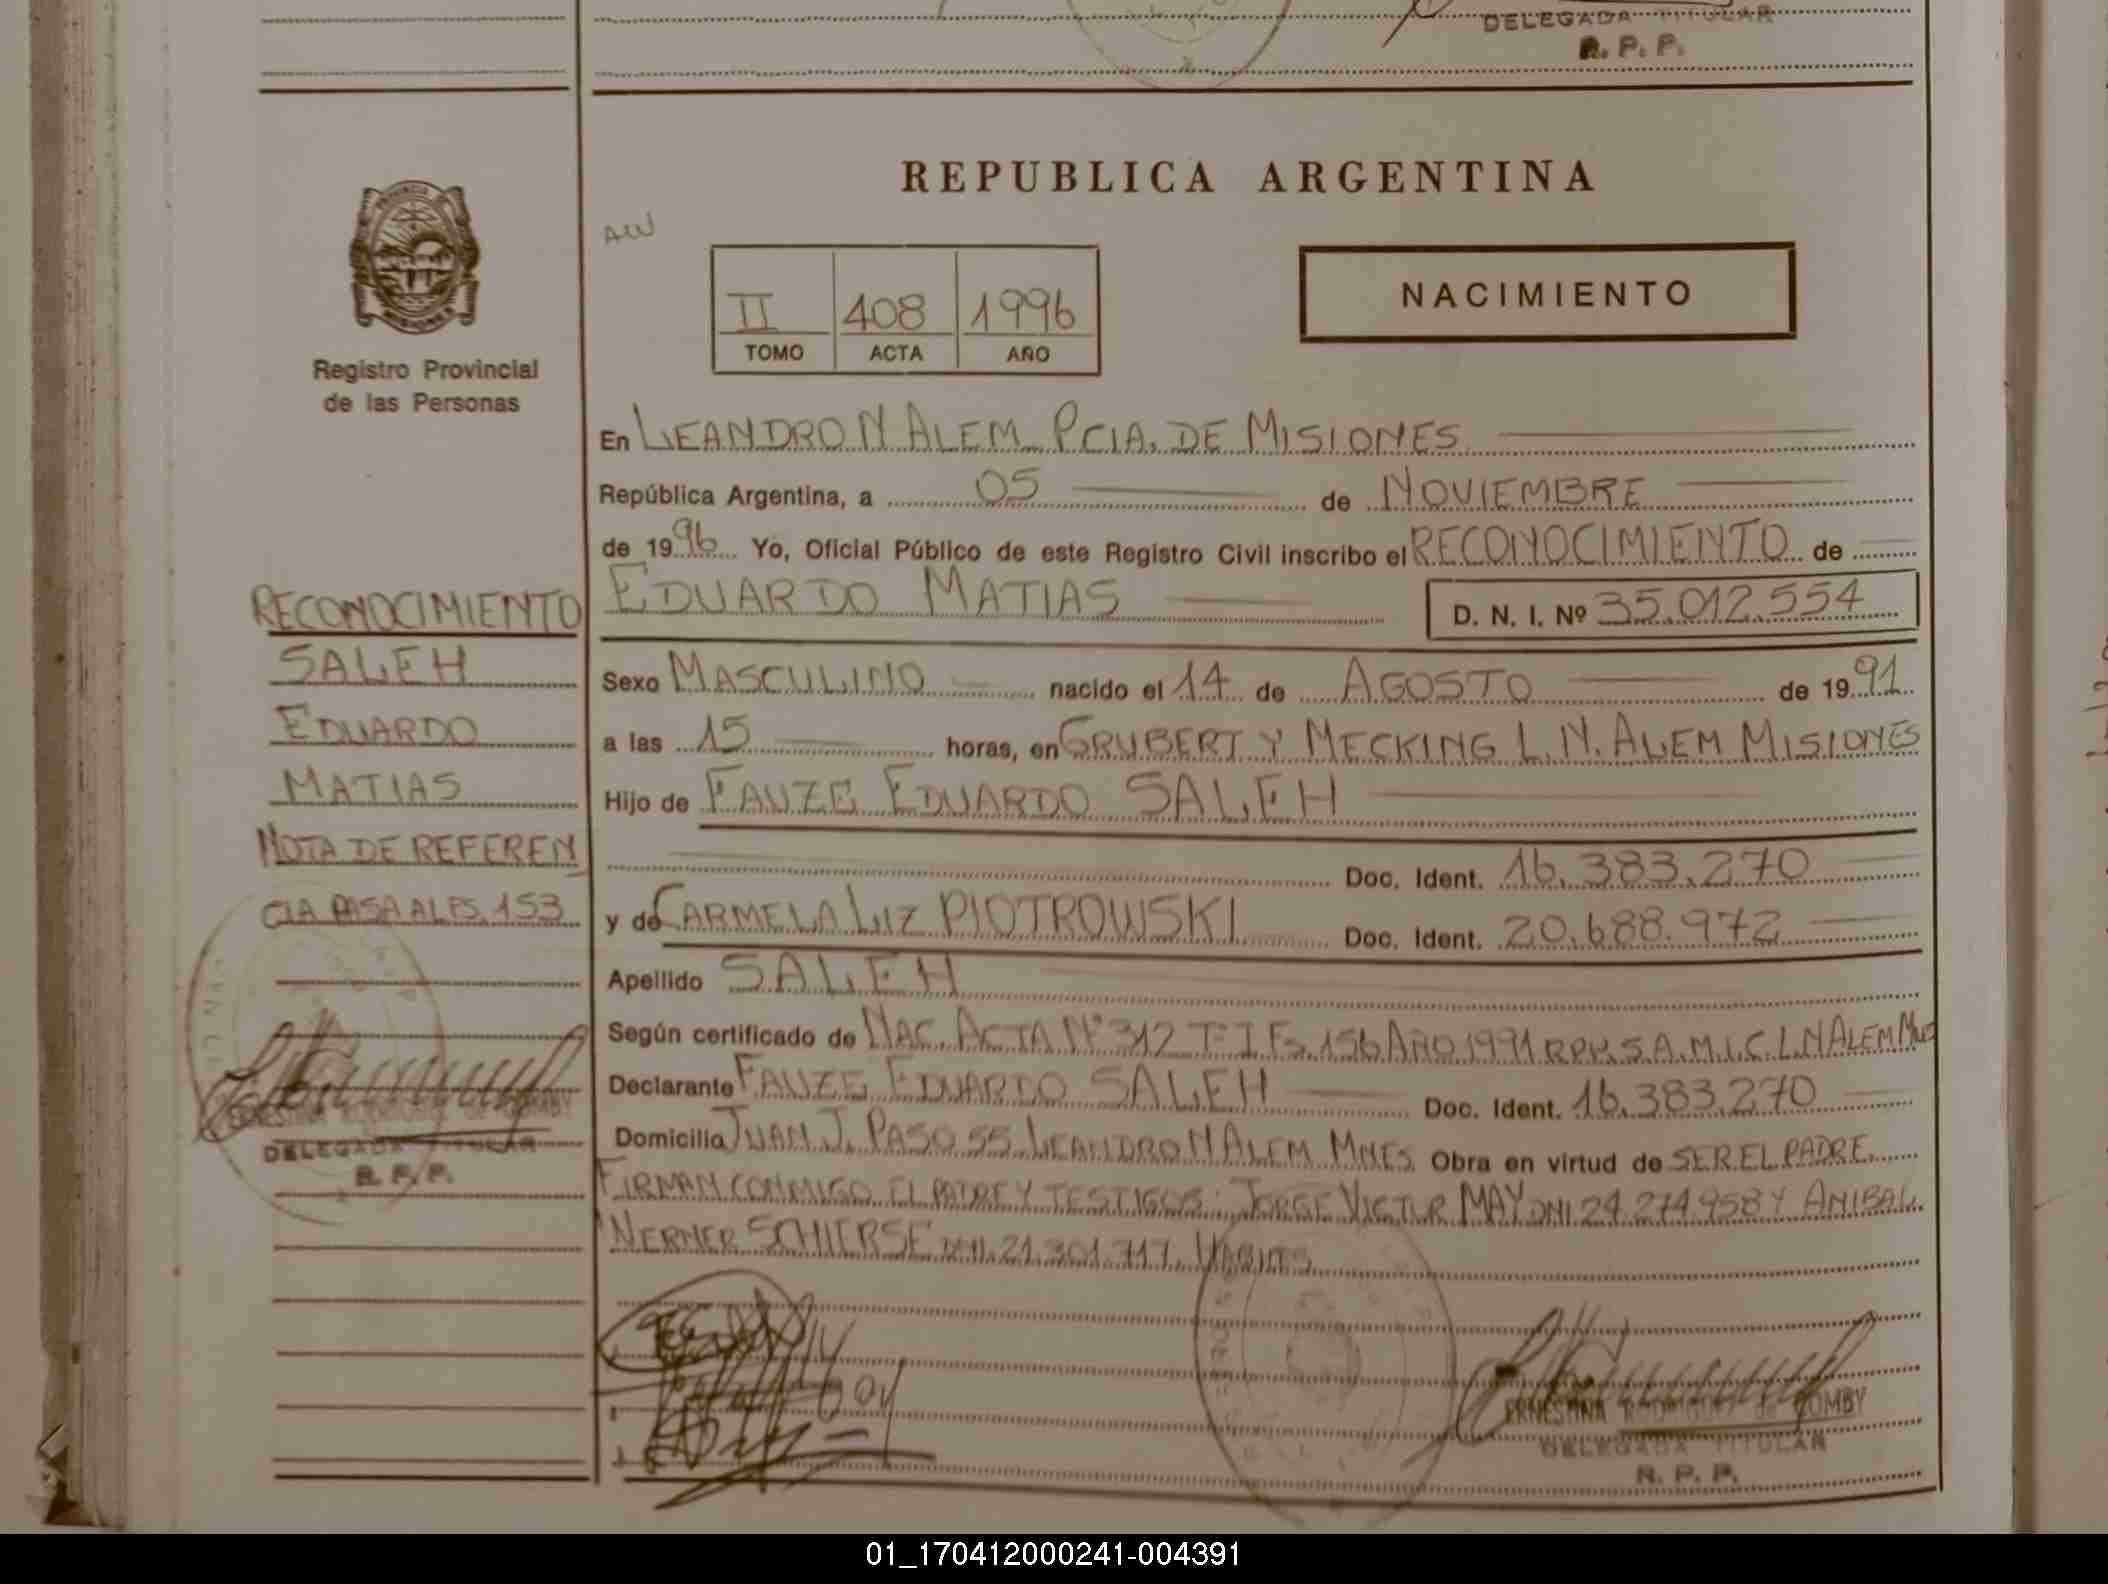 DELEGADA TITULAR
R. P. P.
REPUBLICA ARGENTINA
PROVINCIA
MISIONES
Registro Provincial
de las Personas
AW
II 408 1996
TOMO ACTA AÑO
NACIMIENTO
En LEANDRO N ALEM PCIA. DE MISIONES
República Argentina, a 05 de NOVIEMBRE
de 1996 Yo, Oficial Público de este Registro Civil inscribo el RECONOCIMIENTO de
EDUARDO MATIAS D. N. I. Nº 35.012.554
Sexo MASCULINO nacido el 14 de AGOSTO de 1991
a las 15 horas, en GRUBERT Y MECKING L.N. ALEM MISIONES
Hijo de FAUZE EDUARDO SALEH
Doc. Ident. 16.383.270
y de CARMELA LIZ PIOTROWSKI Doc. Ident. 20.688.972
Apellido SALEH
Según certificado de NAC. ACTA Nº 312 Tº I Fs. 156 AÑO 1991 L.N ALEM MNES
Declarante FAUZE EDUARDO SALEH Doc. Ident. 16.383.270
Domicilio JUAN J. PASO 55 LEANDRO N ALEM MNES Obra en virtud de SER EL PADRE
FIRMAN CONMIGO EL PADRE Y TESTIGOS: JORGE VICTOR MAY DNI 24.274.958 Y ANIBAL
WERNER SCHIERSE DNI 21.301.717.
RECONOCIMIENTO
SALEH
EDUARDO
MATIAS
NOTA DE REFEREN
CIA PASA AL FS. 153
ERNESTINA RODRIGUEZ de COMBY
DELEGADA TITULAR
R. P. P.
ERNESTINA RODRIGUEZ de COMBY
DELEGADA TITULAR
R. P. P.
01_170412000241-004391